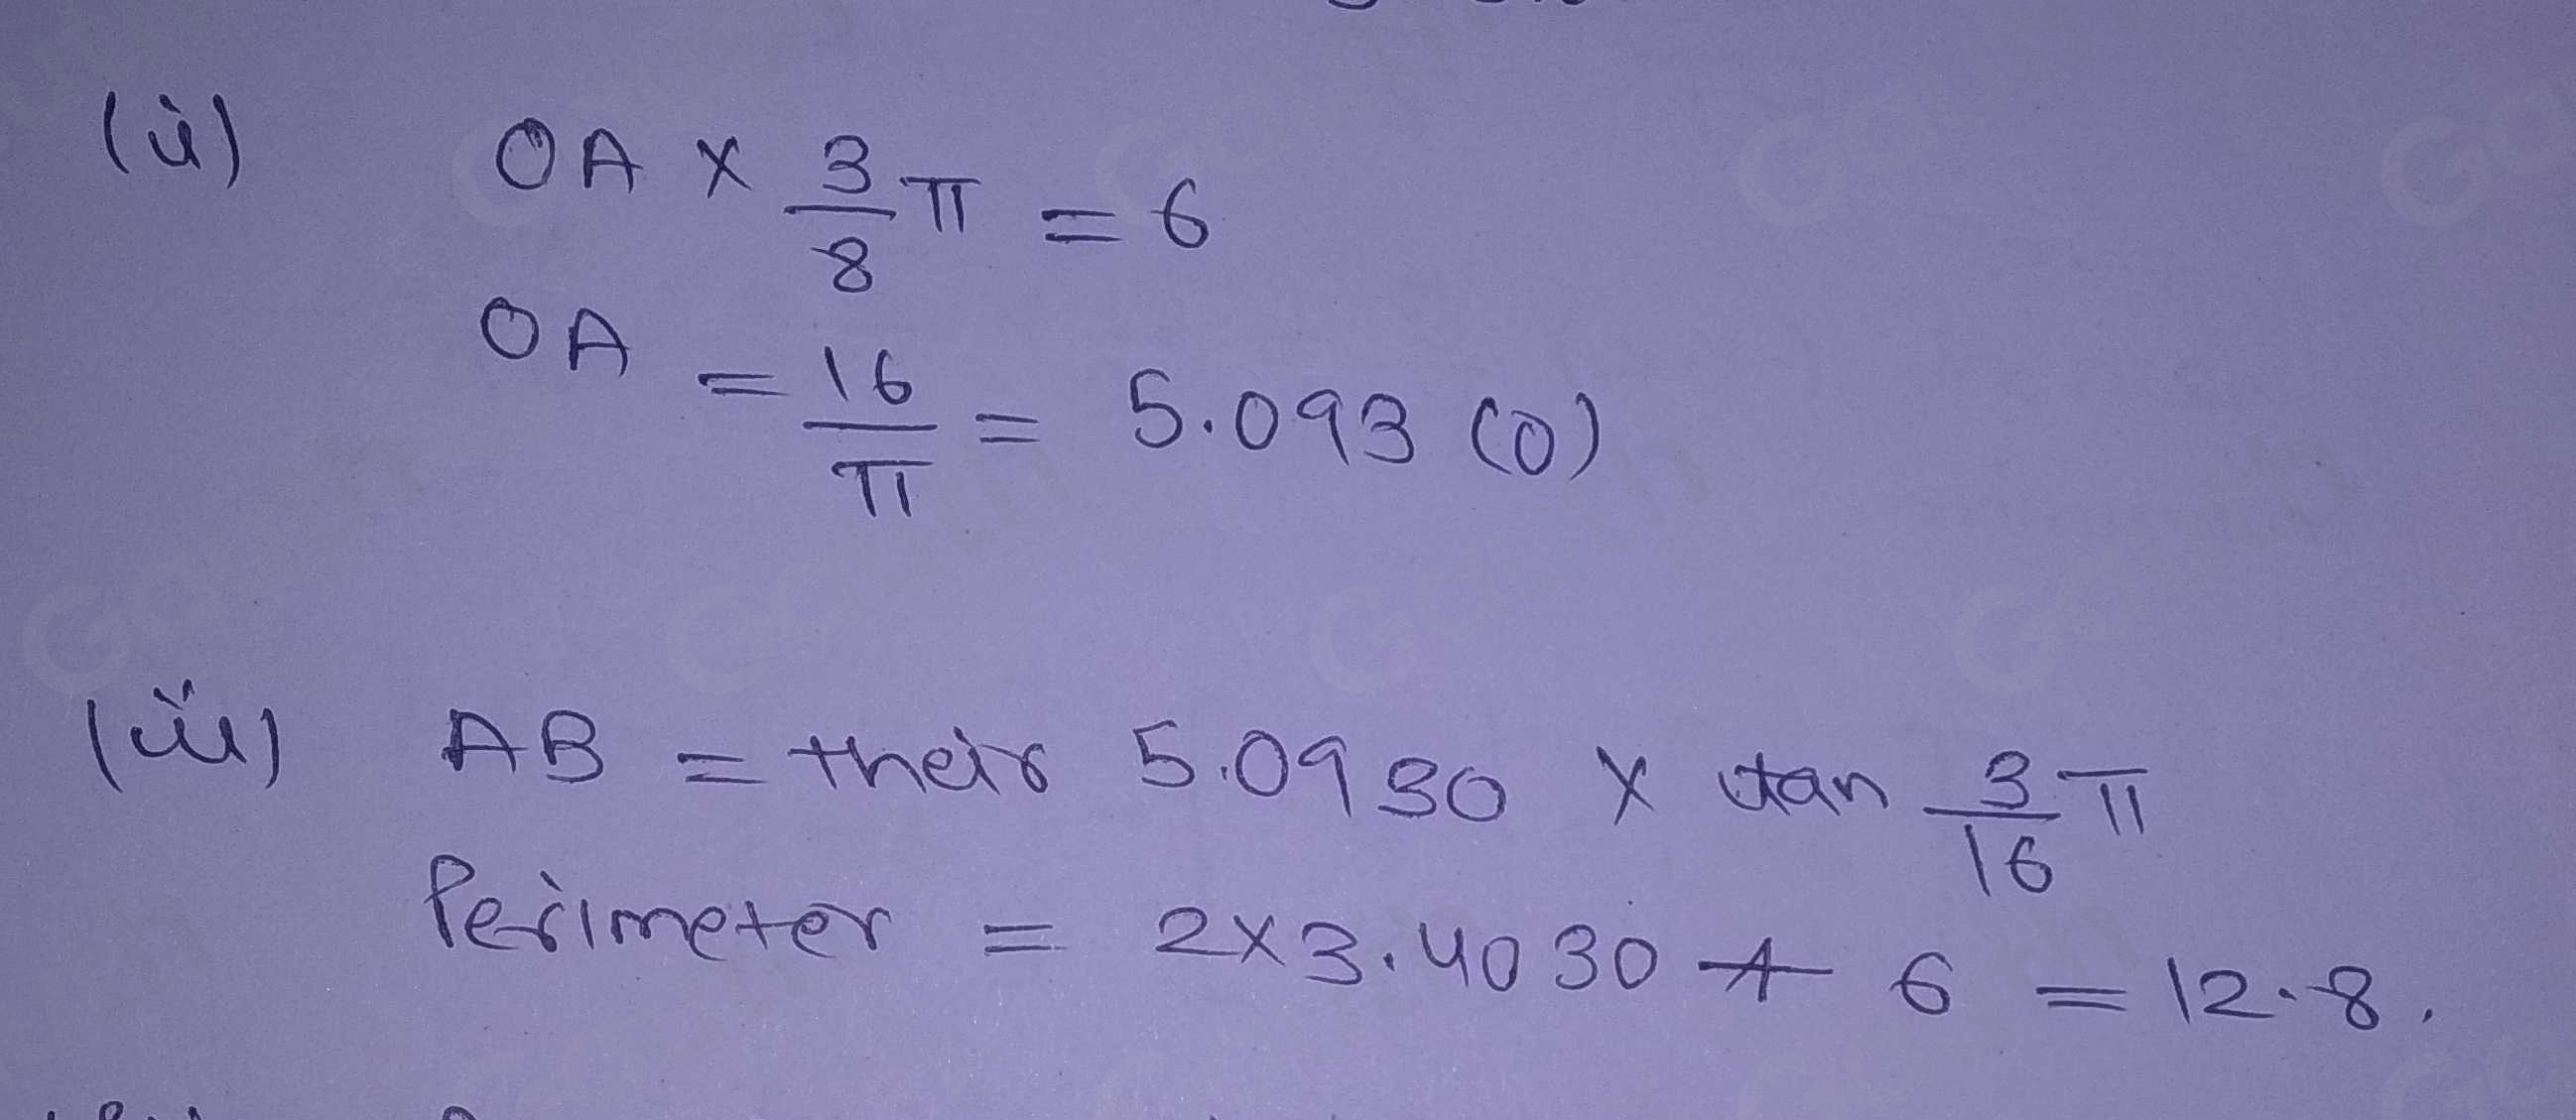 (ii) OA × 3/8 π = 6
OA = 16/π = 5.093 (0)
(iii) AB = their 5.0930 × tan 3/16 π
Perimeter = 2×3.4030 + 6 = 12.8.